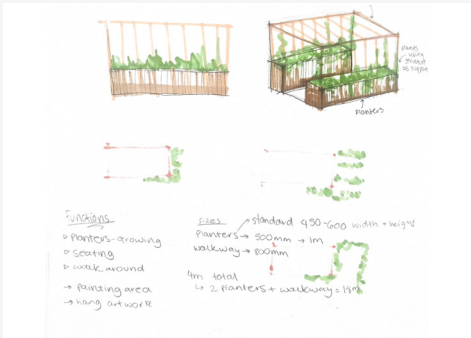 plants
using
planters
Functions
planters-growing
seating
walk around
→ painting area
→ hang artwork
sizes
standard 450-600 width + height
planters → 500mm → 1m
walkway → 800mm
4m total
↳ 2 planters + walkway =